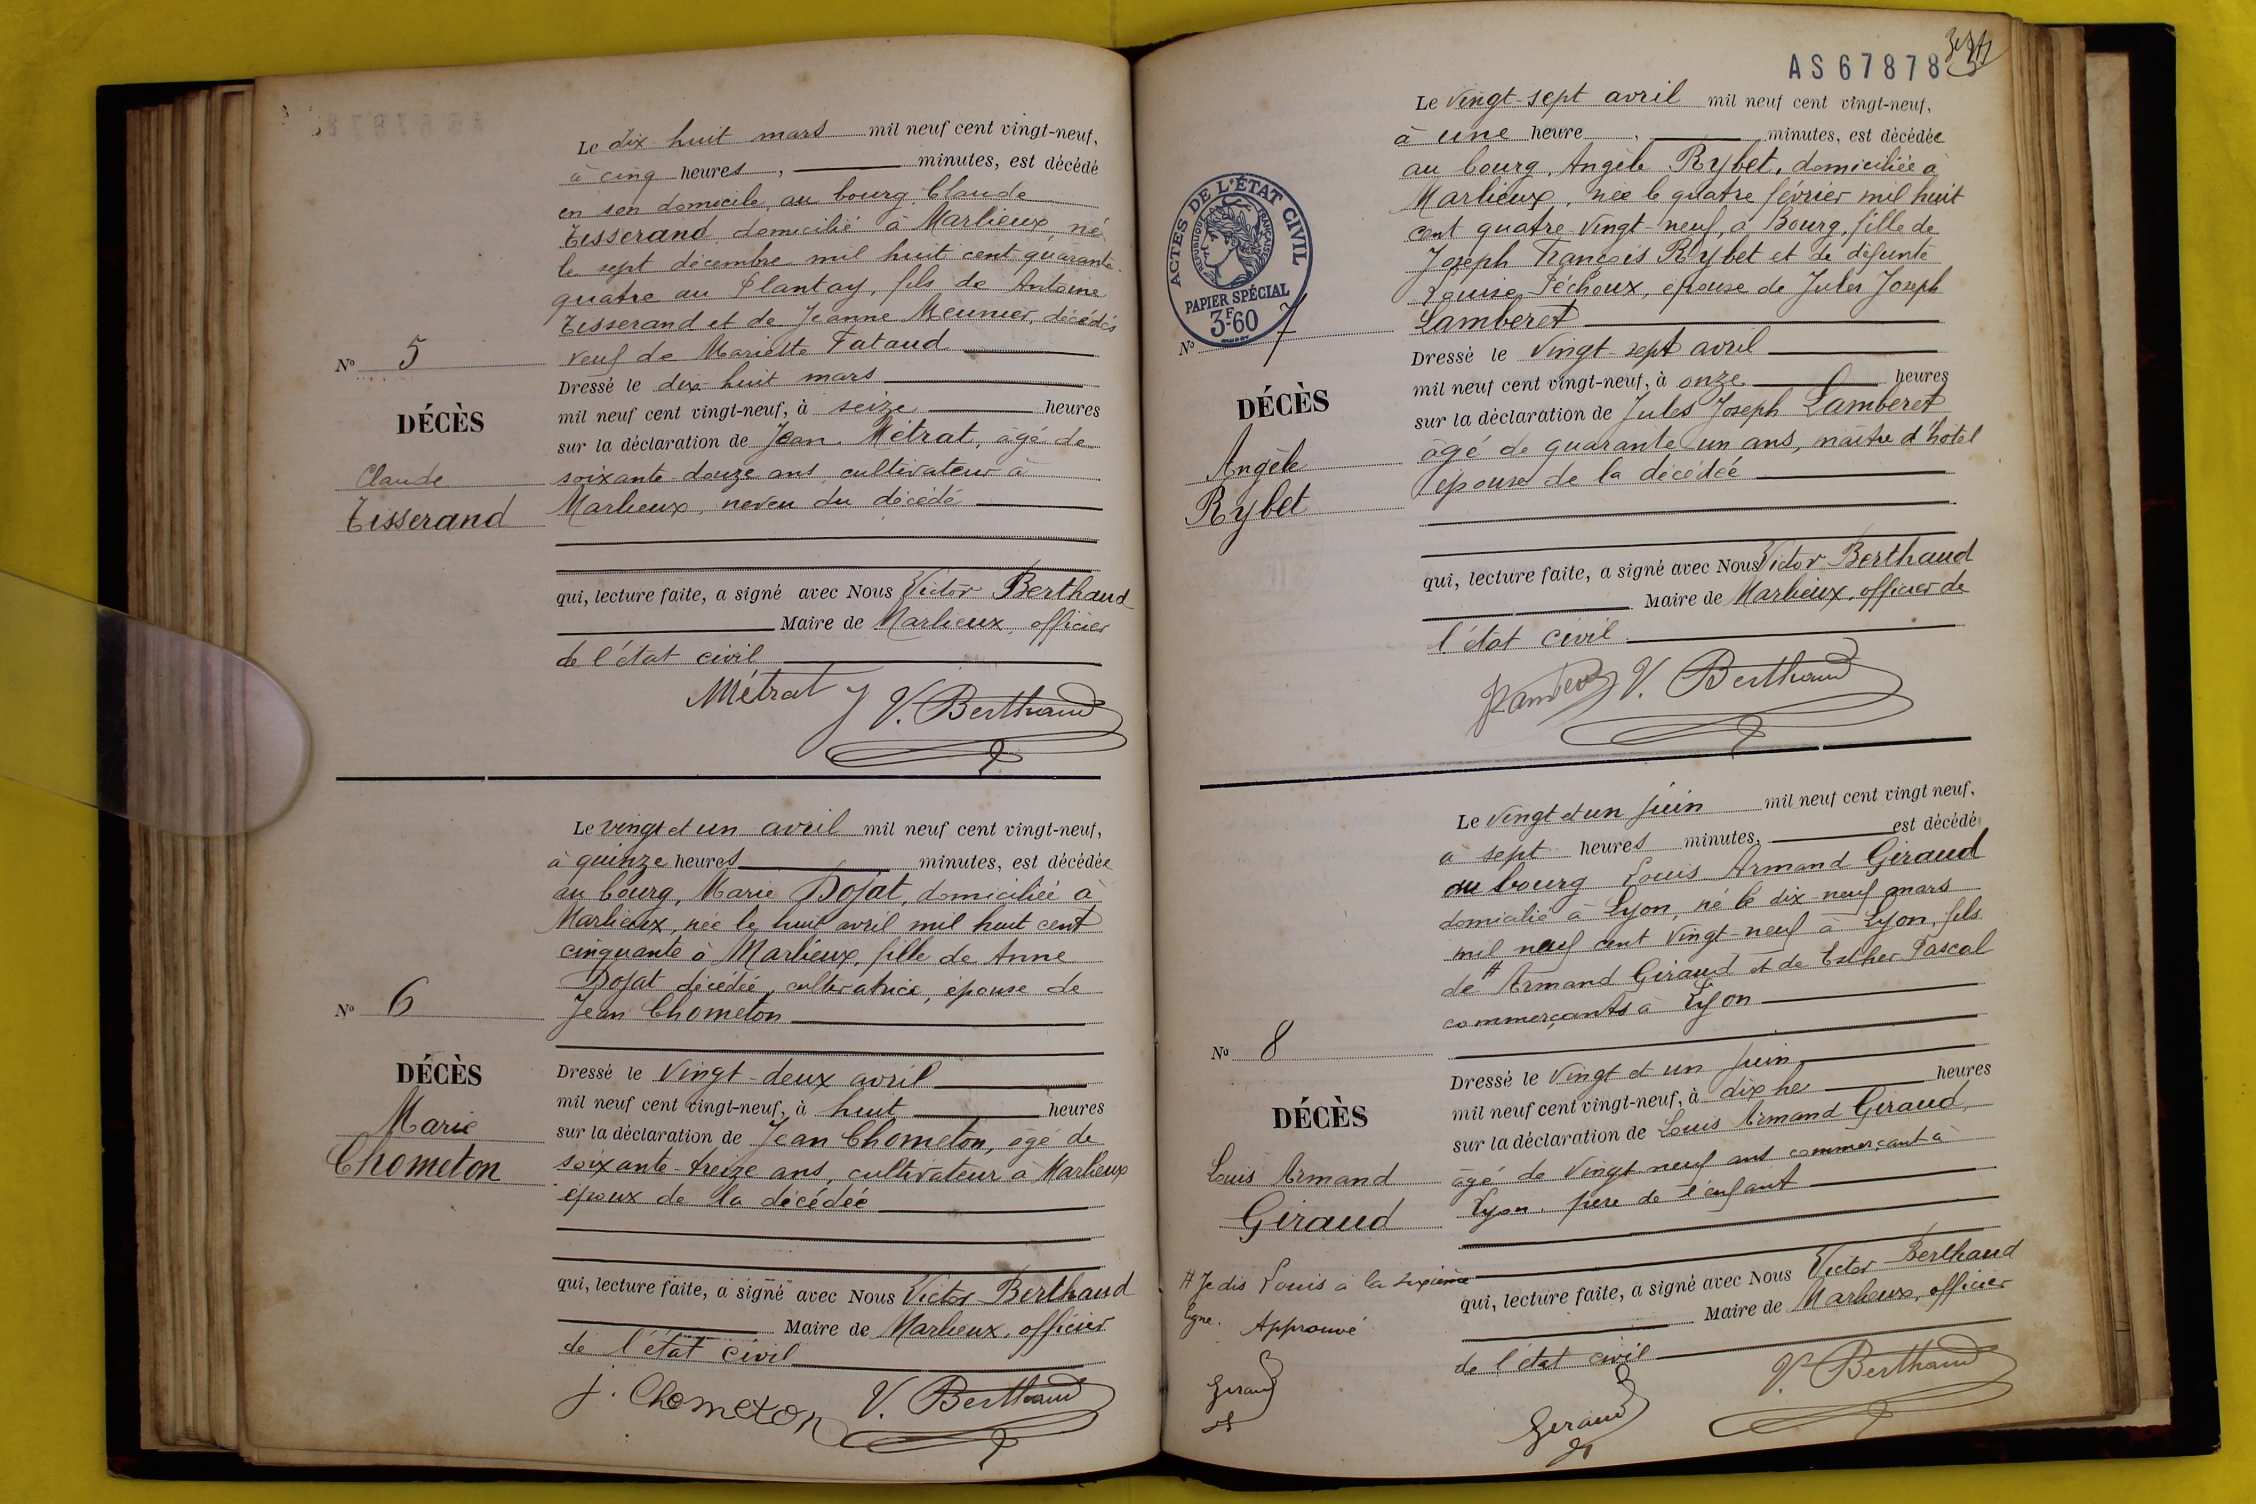 Le dix huit mars mil neuf cent vingt-neuf,
à cinq heures, minutes, est décédé
en son domicile, au bourg, Claude
Tisserand, domicilié à Marlieux, né
le sept décembre mil huit cent quarante-
quatre au Plantay, fils de Antoine
Tisserand et de Jeanne Meunier, décédés
veuf de Mariette Fataud
Nº 5
Dressé le dix-huit mars
mil neuf cent vingt-neuf, à seize heures
DÉCÈS
sur la déclaration de Jean Métrat, âgé de
Claude
soixante douze ans, cultivateur à
Tisserand
Marlieux, neveu du décédé
qui, lecture faite, a signé avec Nous Victor Berthaud
Maire de Marlieux, officier
de l'état civil
Métrat J V. Berthaud
Le vingt et un avril mil neuf cent vingt-neuf,
à quinze heures minutes, est décédée
au bourg, Marie Dojat, domiciliée à
Marlieux, née le huit avril mil huit cent
cinquante à Marlieux, fille de Anne
Dojat décédée, cultivatrice, épouse de
Nº 6
Jean Chometon
DÉCÈS
Dressé le vingt-deux avril
mil neuf cent vingt-neuf, à huit heures
Marie
sur la déclaration de Jean Chometon, âgé de
Chometon
soixante-treize ans, cultivateur à Marlieux
époux de la décédée
qui, lecture faite, a signé avec Nous Victor Berthaud
Maire de Marlieux, officier
de l'état civil
J. Chometon V. Berthaud
AS67878
Le vingt-sept avril mil neuf cent vingt-neuf,
à une heure, minutes, est décédée
au bourg, Angèle Rybet, domiciliée à
Marlieux, née le quatre février mil huit
cent quatre-vingt-neuf, à Bourg, fille de
Joseph François Rybet et de défunte
Louise Féchoux, épouse de Jules Joseph
Lamberet
ACTES DE L'ÉTAT CIVIL
RÉPUBLIQUE FRANÇAISE
PAPIER SPÉCIAL
3F-60
Nº 7
Dressé le vingt-sept avril
mil neuf cent vingt-neuf, à onze heures
DÉCÈS
sur la déclaration de Jules Joseph Lamberet
Angèle
âgé de quarante un ans, maître d'hôtel
Rybet
époux de la décédée
qui, lecture faite, a signé avec Nous Victor Berthaud
Maire de Marlieux, officier de
l'état civil
V. Berthaud
Le vingt et un juin mil neuf cent vingt neuf,
à sept heures minutes, est décédé
au bourg Louis Armand Giraud
domicilié à Lyon, né le dix-neuf mars
mil neuf cent vingt-neuf à Lyon, fils
de # Armand Giraud et de Esther Pascal
commerçants à Lyon
Nº 8
Dressé le vingt et un juin
mil neuf cent vingt-neuf, à dix he heures
DÉCÈS
sur la déclaration de Louis Armand Giraud,
Louis Armand
âgé de vingt neuf ans commerçant à
Giraud
Lyon, père de l'enfant
# Je dis Louis à la sixième
ligne. Approuvé
Giraud
qui, lecture faite, a signé avec Nous Victor Berthaud
Maire de Marlieux, officier
de l'état civil
Giraud V. Berthaud